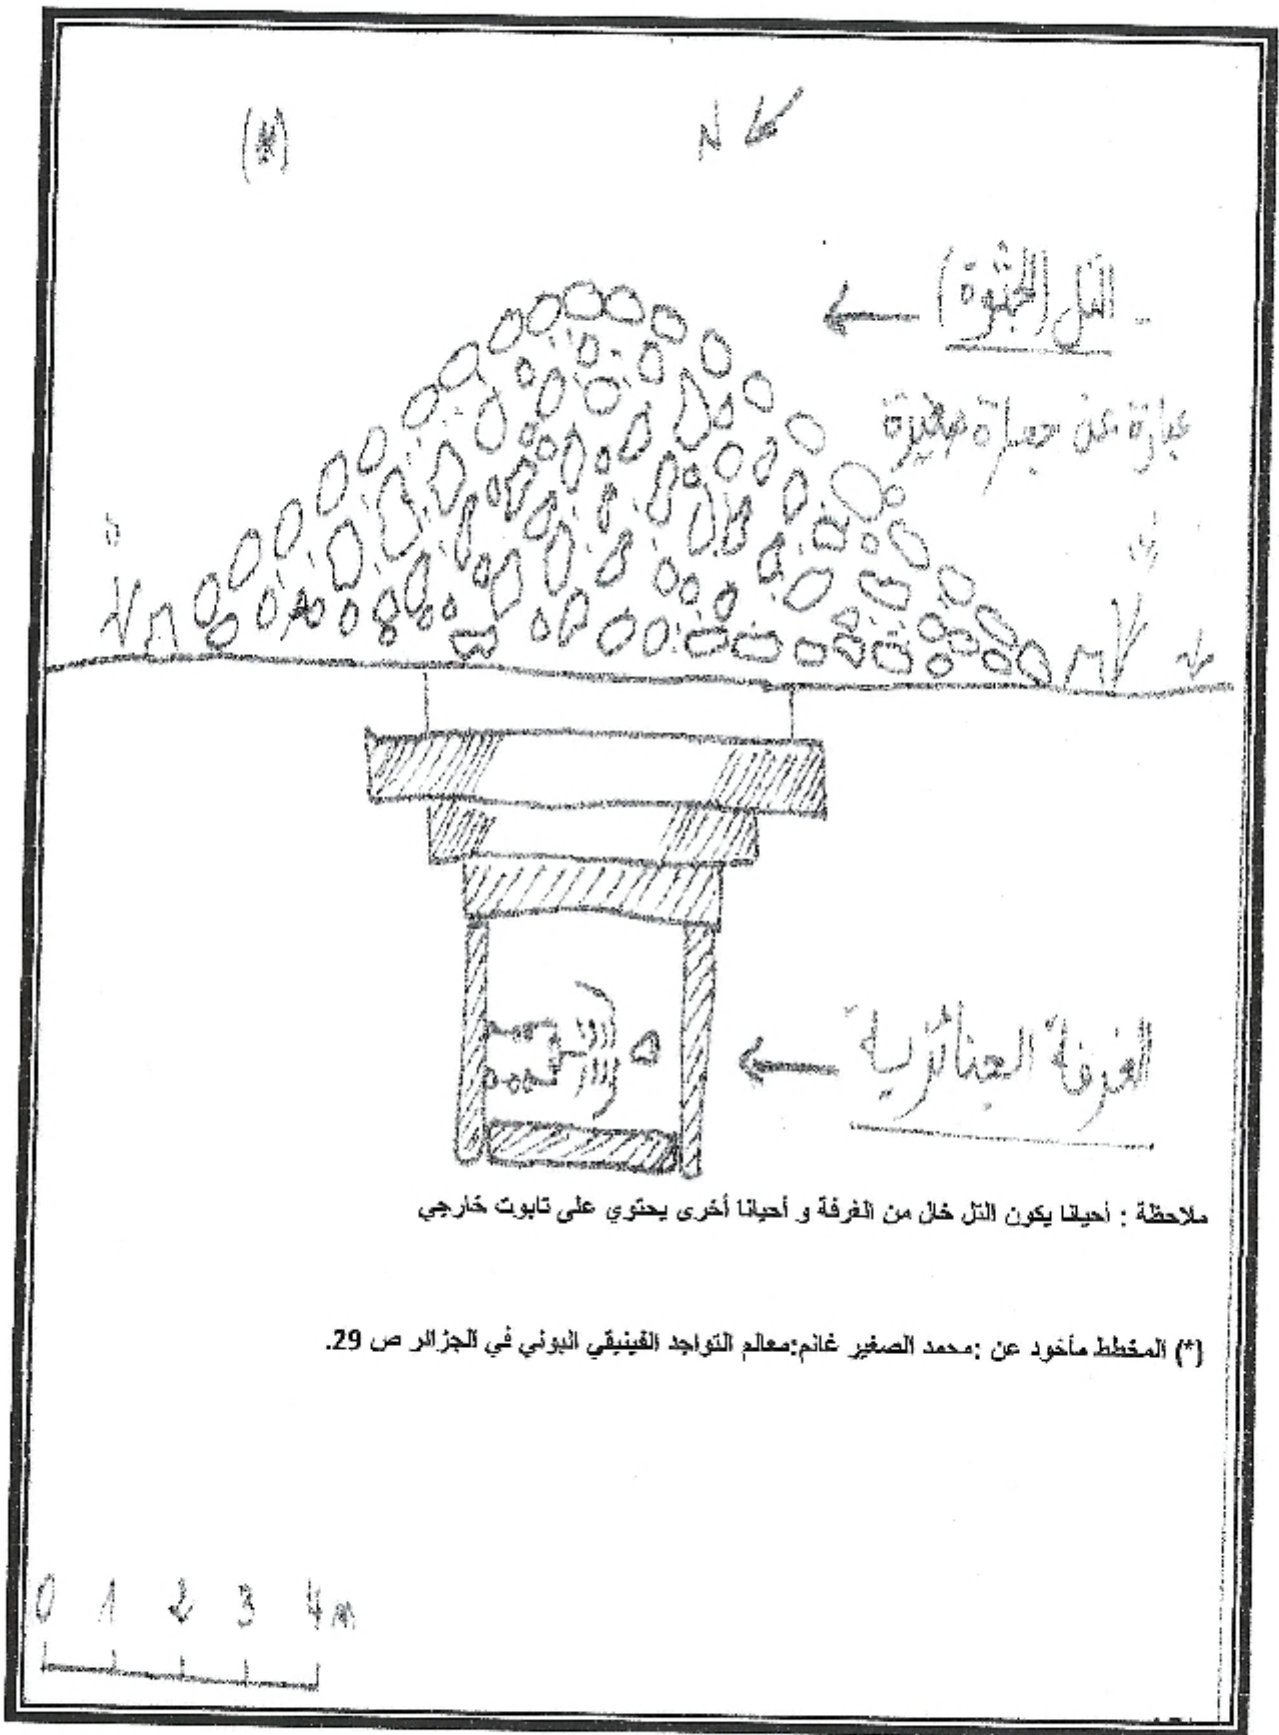 (*)
N
- التل (الجثوة)
عبارة عن حجارة صغيرة
الغرفة الجنائزية
ملاحظة : أحيانا يكون التل خال من الغرفة و أحيانا أخرى يحتوي على تابوت خارجي
(*) المخطط مأخود عن :محمد الصغير غانم:معالم التواجد الفينيقي البوني في الجزائر ص 29.
0 1 2 3 4 m